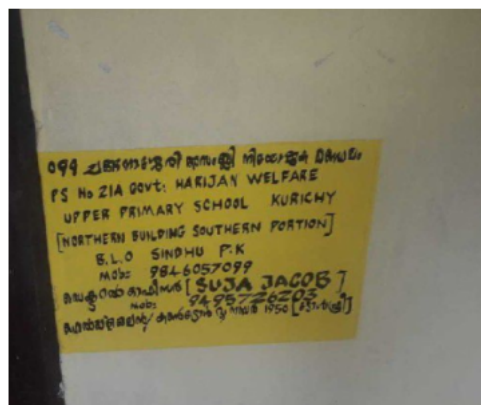 099 ചങ്ങനാശ്ശേരി അസംബ്ലി നിയോജക മണ്ഡലം
PS No 21A GOVT: HARIJAN WELFARE
UPPER PRIMARY SCHOOL KURICHY
[NORTHERN BUILDING SOUTHERN PORTION]
B.L.O SINDHU P.K
Mob: 9846057099
[SUJA JACOB]
Mob: 9495726203
1950